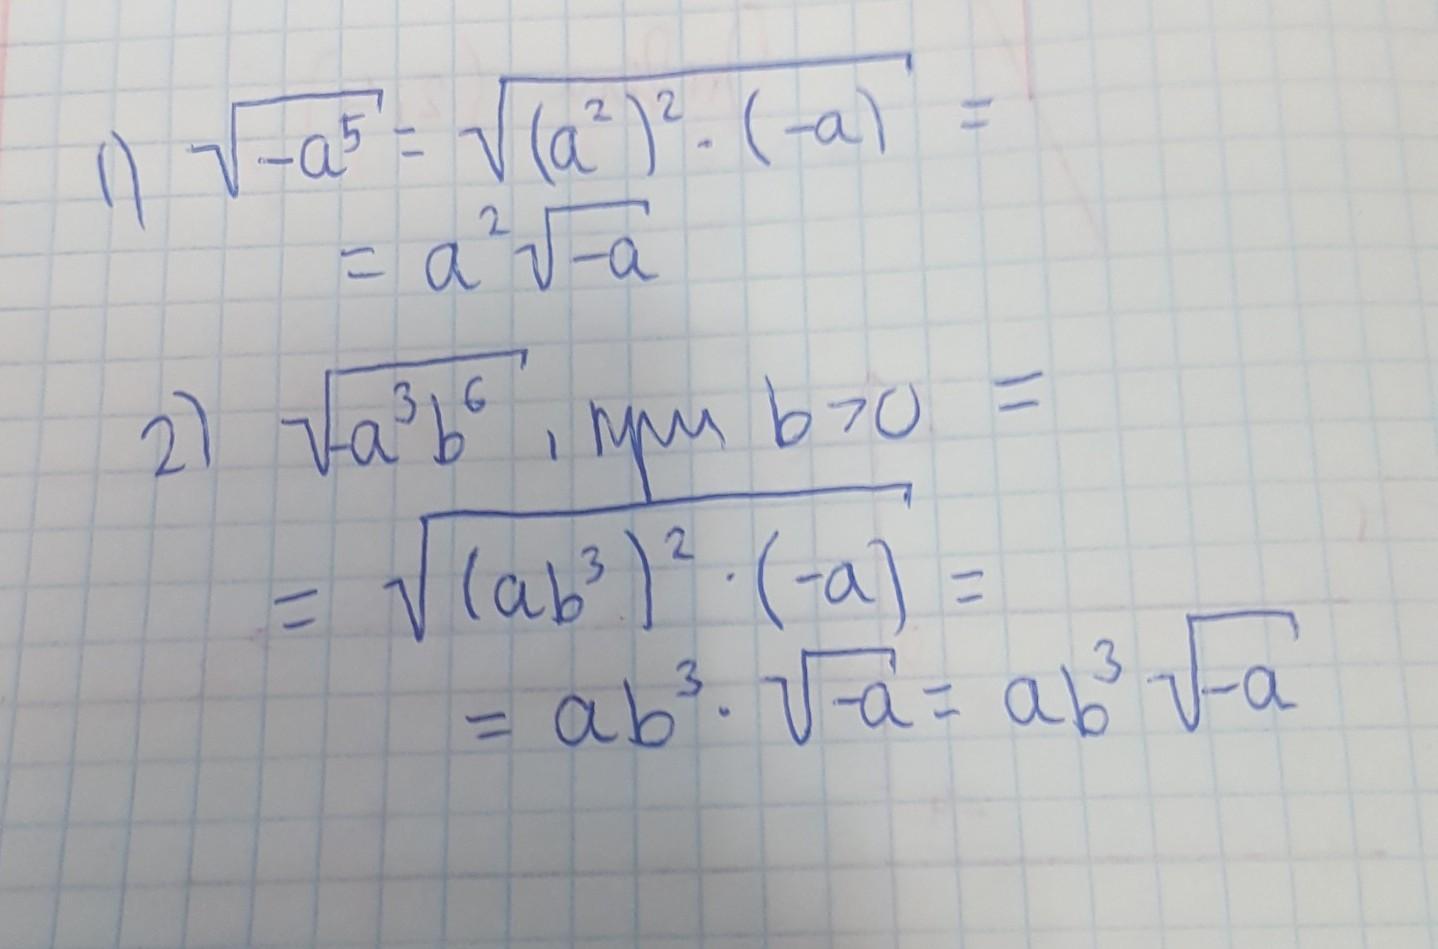 1) √-a⁵ = √(a²)² · (-a) =
= a² √-a
2) √-a³b⁶ , при b>0 =
= √(ab³)² · (-a) =
= ab³ · √-a = ab³ √-a